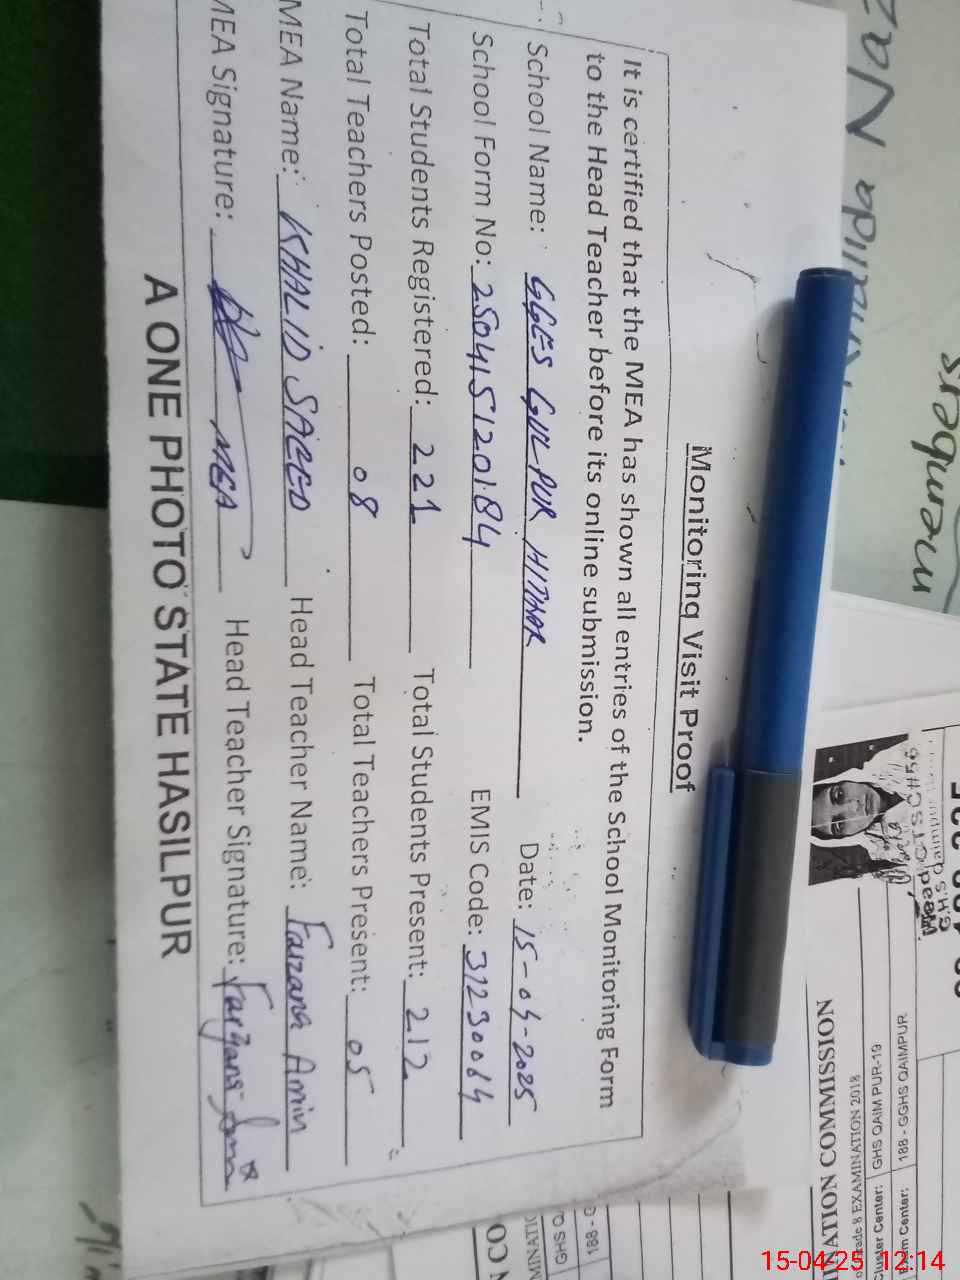 Monitoring Visit Proof
It is certified that the MEA has shown all entries of the School Monitoring Form
to the Head Teacher before its online submission.
School Name: GGES GUL PUR HITHAR Date: 15-04-2025
School Form No: 250415120184 EMIS Code: 31230064
Total Students Registered: 221 Total Students Present: 212
Total Teachers Posted: 08 Total Teachers Present: 05
MEA Name: KHALID SAEED Head Teacher Name: Farzana Amin
MEA Signature: MEA Head Teacher Signature: Farzana
A ONE PHOTO STATE HASILPUR
NATION COMMISSION
Grade 8 EXAMINATION 2018
Cluster Center: GHS QAIM PUR-19
Exam Center: 188 - GGHS QAIMPUR
188
GHS
15-04-25 12:14